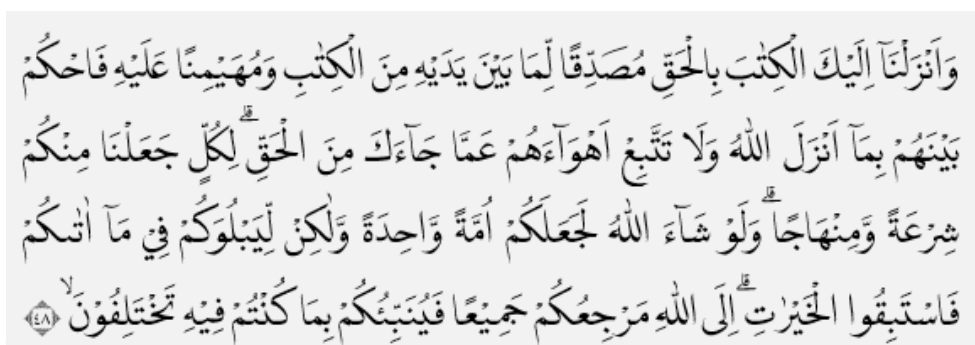 وَاَنْزَلْنَآ اِلَيْكَ الْكِتٰبَ بِالْحَقِّ مُصَدِّقًا لِّمَا بَيْنَ يَدَيْهِ مِنَ الْكِتٰبِ وَمُهَيْمِنًا عَلَيْهِ فَاحْكُمْ
بَيْنَهُمْ بِمَآ اَنْزَلَ اللّٰهُ وَلَا تَتَّبِعْ اَهْوَاۤءَهُمْ عَمَّا جَاۤءَكَ مِنَ الْحَقِّۗ لِكُلٍّ جَعَلْنَا مِنْكُمْ
شِرْعَةً وَّمِنْهَاجًاۗ وَلَوْ شَاۤءَ اللّٰهُ لَجَعَلَكُمْ اُمَّةً وَّاحِدَةً وَّلٰكِنْ لِّيَبْلُوَكُمْ فِيْ مَآ اٰتٰىكُمْ
فَاسْتَبِقُوا الْخَيْرٰتِۗ اِلَى اللّٰهِ مَرْجِعُكُمْ جَمِيْعًا فَيُنَبِّئُكُمْ بِمَا كُنْتُمْ فِيْهِ تَخْتَلِفُوْنَۙ ﴿٤٨﴾